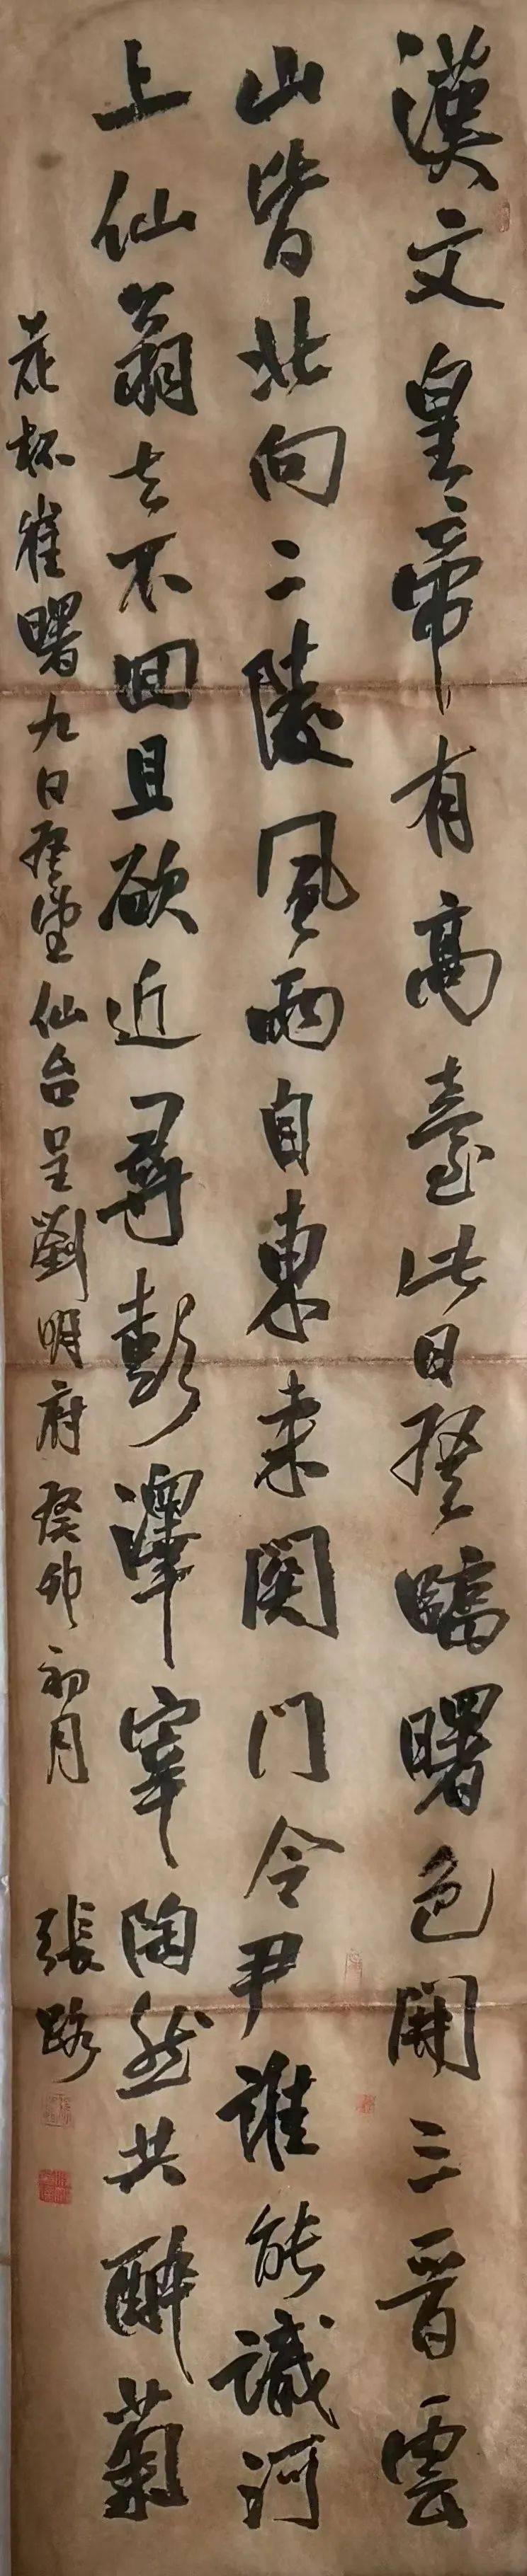 漢文皇帝有高臺此日登臨曙色開三晋雲
山皆北向二陵風雨自東来関门令尹谁能識河
上仙翁去不回且欲近尋彭澤宰陶然共醉菊
花杯崔曙九日登望仙台呈劉明府癸卯初月
張路